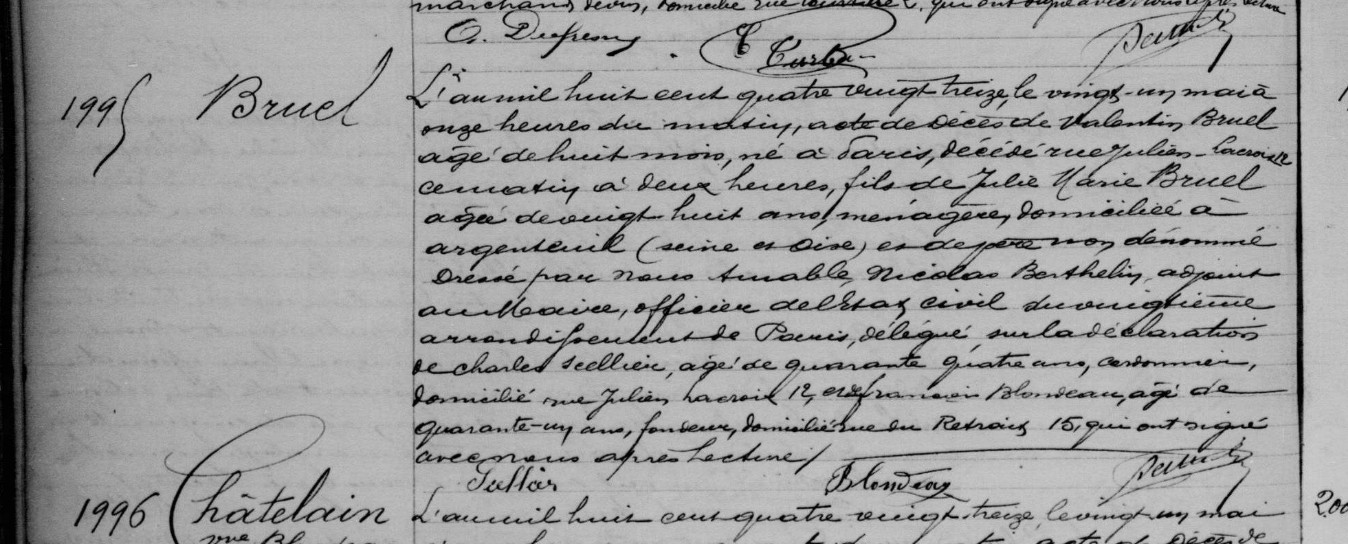 marchand de vin, domicilié rue 2, qui ont signé avec nous après lecture
1995
Bruel
L'an mil huit cent quatre vingt treize, le vingt-un mai à
onze heures du matin, acte de décès de Valentin Bruel
âgé de huit mois, né à Paris, décédé rue Julien-Lacroix 12
ce matin à deux heures, fils de Julie Marie Bruel
âgée de vingt huit ans, ménagère, domiciliée à
argenteuil (Seine et Oise) et de père non dénommé
Dressé par nous Amable, Nicolas Berthelin, adjoint
au Maire, officier de l'Etat civil du vingtième
arrondissement de Paris, délégué, sur la déclaration
de charles Sellier, âgé de quarante quatre ans, cordonnier,
domicilié rue Julien Lacroix 12, et de françois Blondeau, âgé de
quarante-un ans, fondeur, domicilié rue du Retrait 15, qui ont signé
avec nous après lecture /
Blondeau
1996
Châtelain
L'an mil huit cent quatre vingt-treize, le vingt un mai
acte de décès de